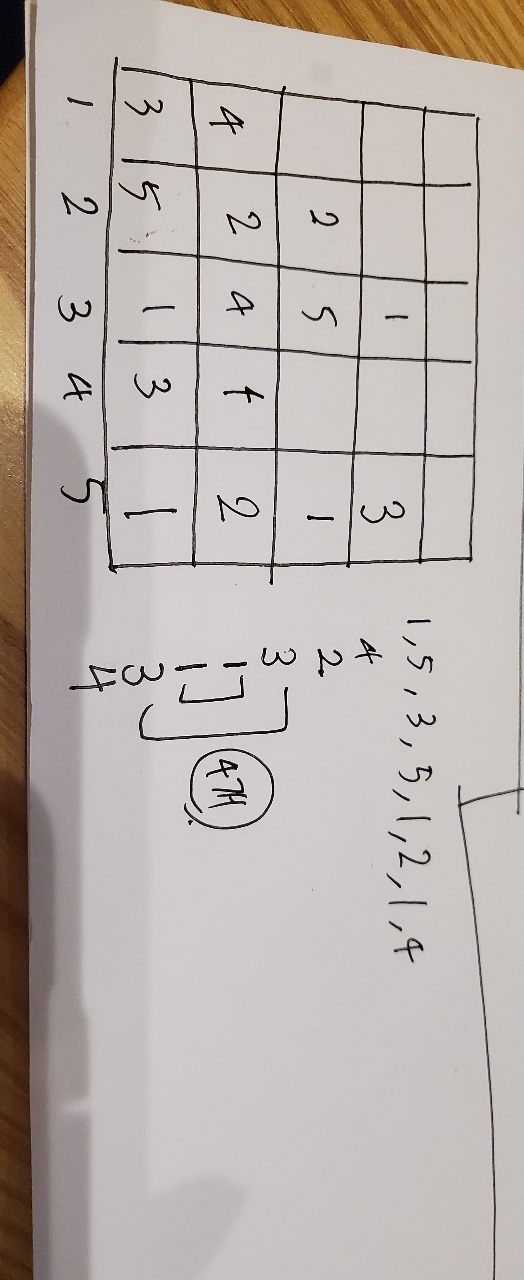 1 3
2 5 1
4 2 4 4 2
3 5 1 3 1
1 2 3 4 5
1, 5, 3, 5, 1, 2, 1, 4
4
2
3
1
1
3
4
4개